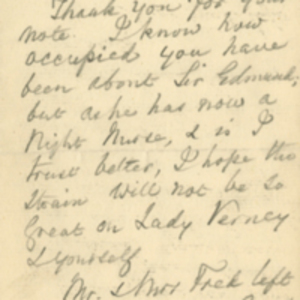 Thank you for your
note. I know how
occupied you have
been about Sir Edmund,
but as he has now a
Night Nurse, & is I
trust better, I hope the
strain will not be so
great on Lady Verney
& yourself.
Mr. & Mrs Fred left